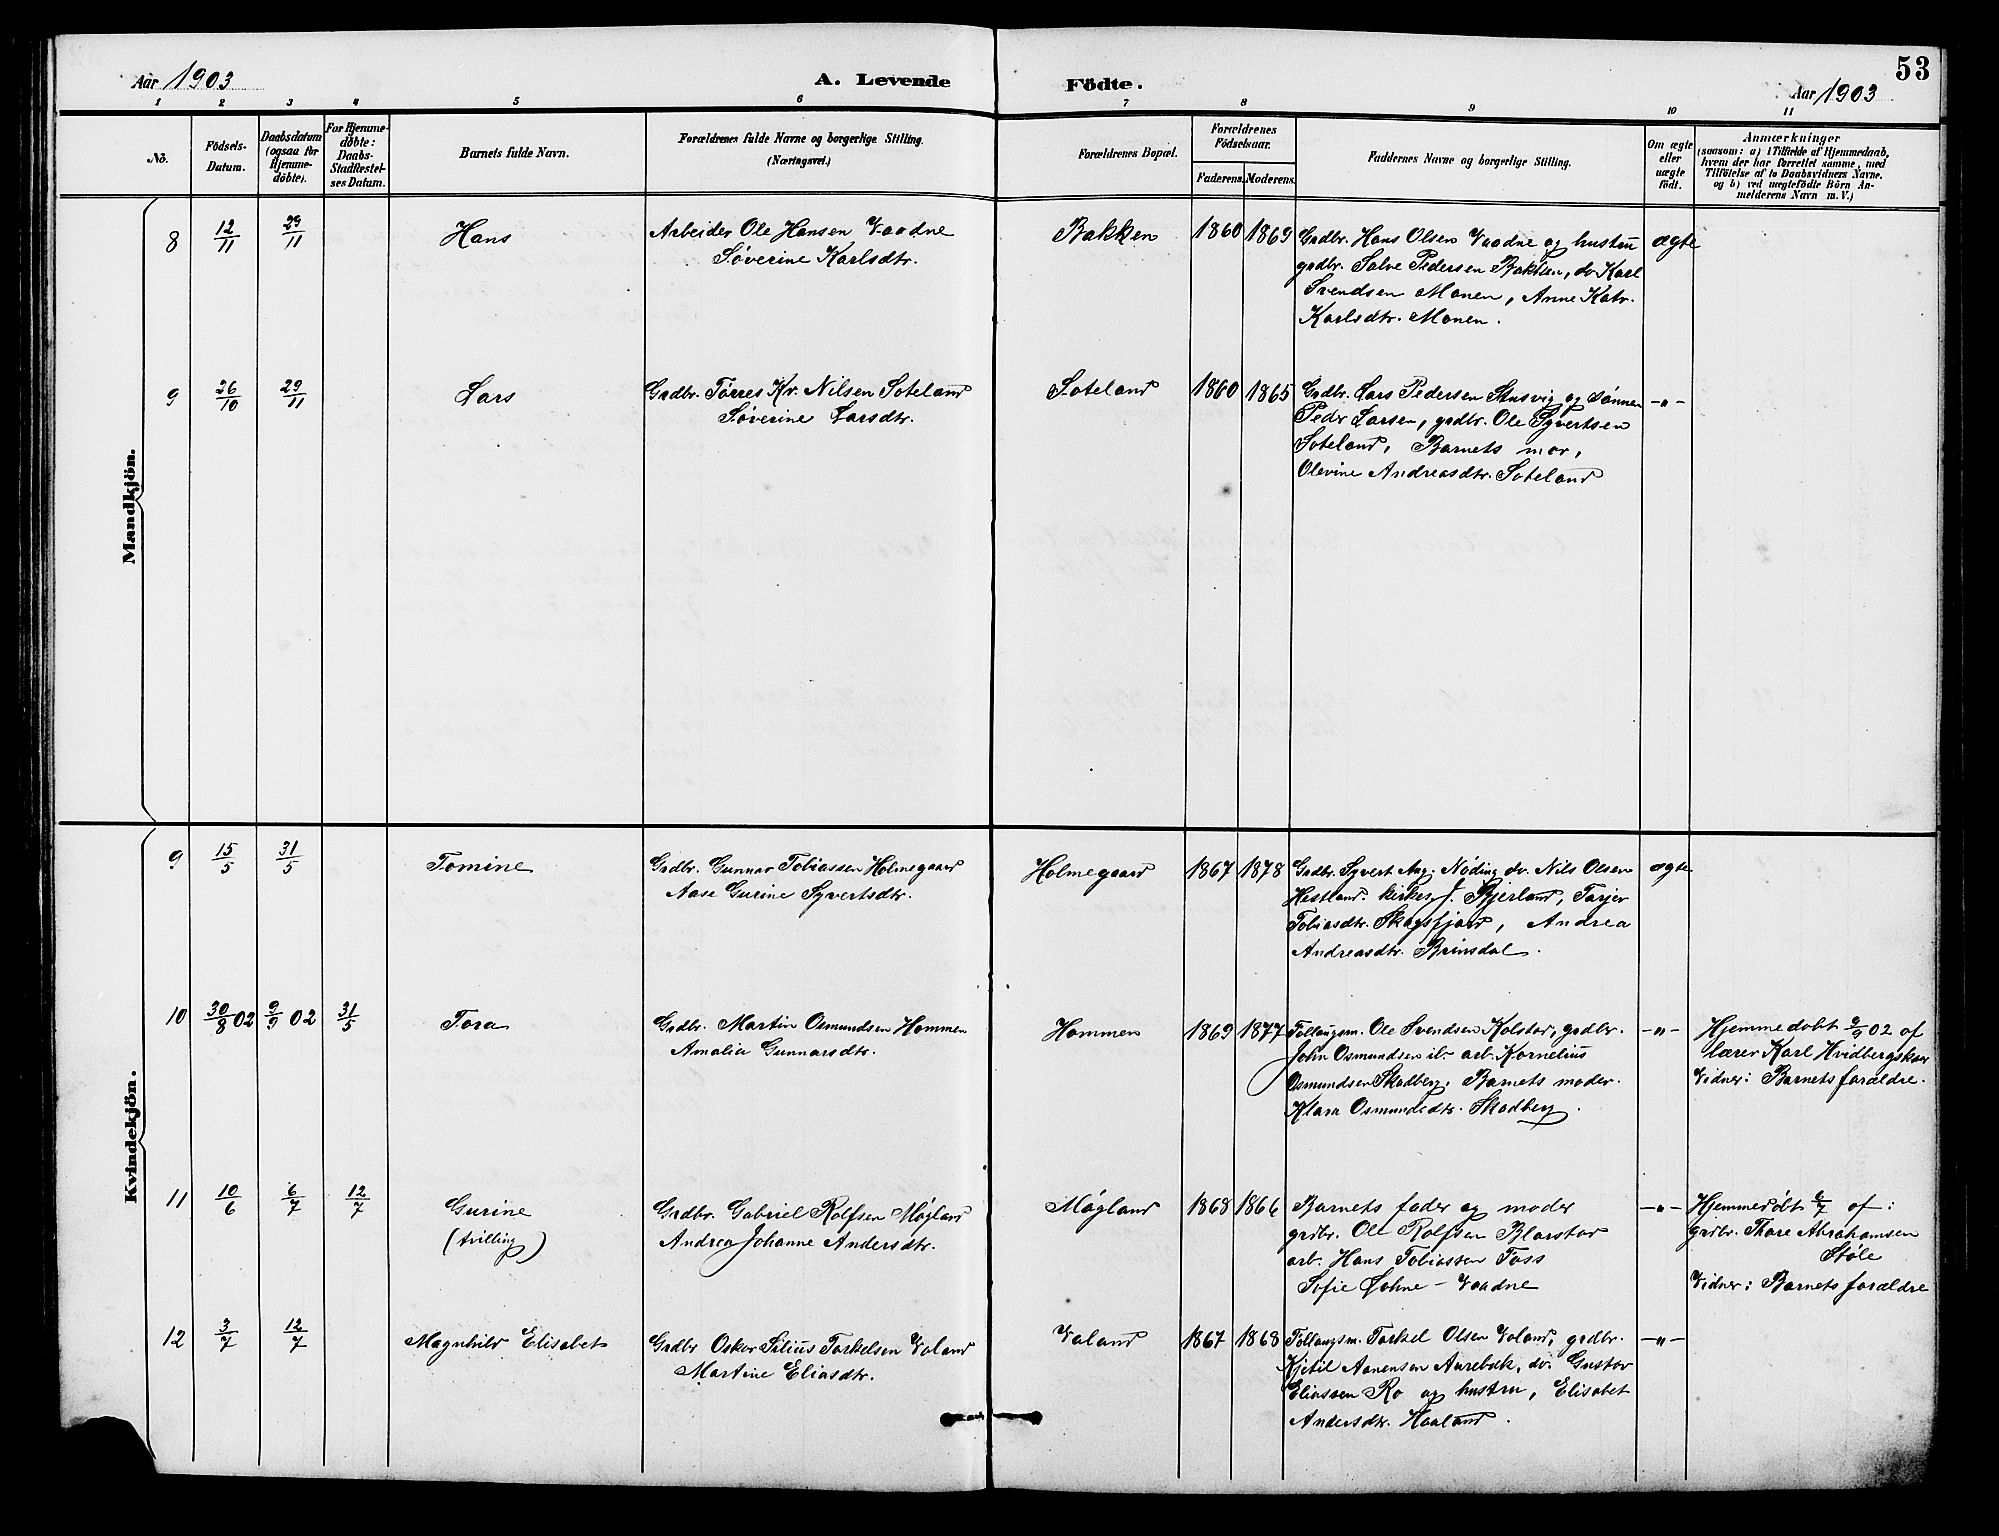 53
Aar 1903
A. Levende
Födte.
Aar 1903
1 2 3 4 5 6 7 8 9 10 11
No.
Födsels-
Datum.
Daabsdatum
(ogsaa for
Hjemme-
döbte).
For Hjemme-
döbte:
Daabs-
Stadfæstel-
ses Datum.
Barnets fulde Navn.
Forældrenes fulde Navne og borgerlige Stilling.
(Næringsvei.)
Forældrenes Bopæl.
Forældrenes
Födselsaar.
Faderens. Moderens.
Faddernes Navne og borgerlige Stilling.
Om ægte
eller
uægte
födt.
Anmærkninger
(saasom: a) i Tilfælde af Hjemmedaab,
hvem der har forrettet samme, med
Tilföielse af to Daabsvidners Navne.
og b) ved uægtefödte Börn An-
melderens Navn m. V.)
Mandkjön.
8 12/11 29/11 Hans
Arbeider Ole Hansen Vaadne
Søverine Karlsdtr.
Bakken 1860 1869
Grdbr. Hans Olsen Vaadne og hustru
grdbr. Salve Pedersen Bakken, dv Karl
Svendsen Monen, Anne Katr.
Karlsdtr. Monen.
ægte
9 26/10 29/11 Lars
Grdbr. Tørres Kr. Nilsen Soteland
Søverine Larsdtr.
Soteland 1860 1865
Grdbr. Lars Pedersen og sønnen
Peder Larsen, grdbr. Ole Syvertsen
Soteland, Barnets mor,
Olevine Andreasdtr. Soteland
-"-
Kvindekjön.
9 15/5 31/5 Tomine
Grdbr. Gunnar Tobiassen Holmegaard
Aase Gurine Syvertsdtr.
Holmegaard 1867 1878
Grdbr. Syvert Aag. Nöding dv. Nils Olsen
Hestland. kirkes. f. Bjerland, Tarjer
Tobiasdtr. Skogsfjord, Andrea
Andreasdtr. Brinsdal.
ægte
10 30/8 02 9/9 02 31/5 Tora
Grdbr. Martin Osmundsen Hommen
Amalia Gunnarsdtr.
Hommen 1869 1877
Follaugsm. Ole Svendsen Kolstad, grdbr.
John Osmundsen ib. arb. Kornelius
Osmundsen Skadberg, Barnets moder.
Klara Osmundsdtr. Skadberg.
-"-
Hjemmedöbt 9/9 02 af
lærer Karl Hvidbergskaar
Vidner: Barnets forældre.
11 10/6 6/7 12/7 Gurine
(tvilling)
Grdbr. Gabriel Rolfsen Møgland
Andrea Johanne Andersdtr.
Møgland 1868 1866
Barnets fader og moder
grdbr. Ole Rolfsen Blørstad
arb. Hans Tobiassen Foss
Sofie Øohne - Vaadne
-"-
Hjemmedöbt 6/7 af:
grdbr. Thore Abrahamsen
Støle
Vidner: Barnets forældre
12 3/7 12/7 Magnhild Elisabet
Grdbr Oskar Silius Torkelsen Valand
Martine Eliasdtr.
Valand 1867 1868
Follaugsm. Torkel Olsen Valand, grdbr.
Kjetil Aanensen Aurebæk, dv. Gustav
Eliassen Ro og hustru, Elisabet
Andersdtr. Haaland.
-"-